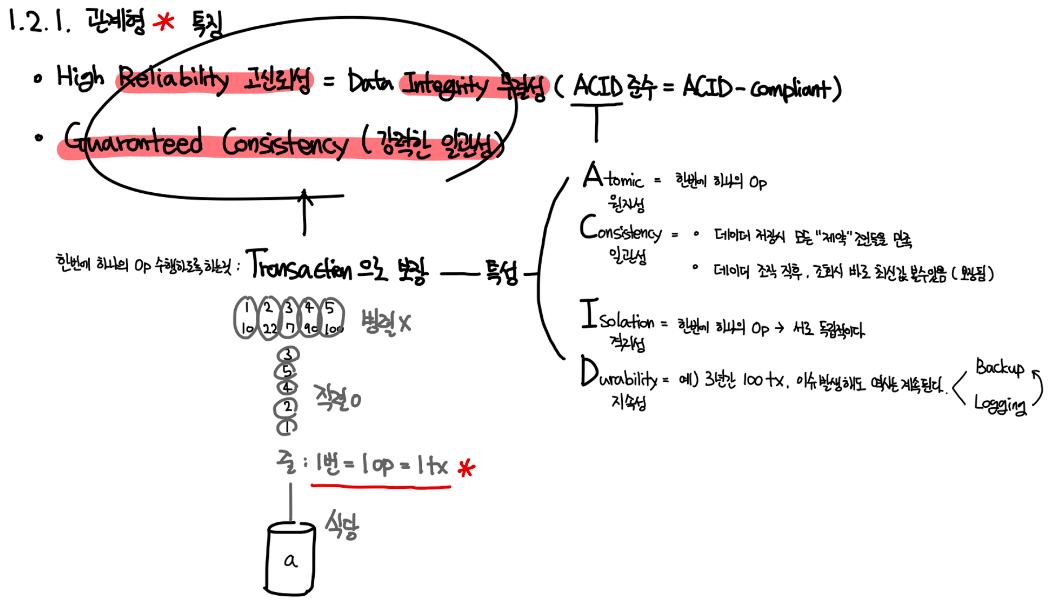 1.2.1. 관계형 * 특징
• High Reliability 고신뢰성 = Data Integrity 무결성 ( ACID 준수 = ACID-compliant)
• Guaranteed Consistency ( 강력한 일관성)
Atomic = 한번에 하나의 Op
원자성
Consistency = • 데이터 저장시 모든 "제약" 조건들을 만족
일관성
• 데이터 조작 직후, 조회시 바로 최신값 볼수있음 ( 보장됨)
한번에 하나의 Op 수행하도록 하는것 : Transaction으로 보장 — 특성
Isolation = 한번에 하나의 Op → 서로 독립적이다.
격리성
1 2 3 4 5
10 22 7 90 100
병렬 X
Durability = 예) 3년간 100 tx, 이슈발생해도 역사는 계속된다.
지속성
Backup
Logging
3
5
4
2
1
직렬 O
줄 : 1번 = 1 op = 1 tx *
식당
a